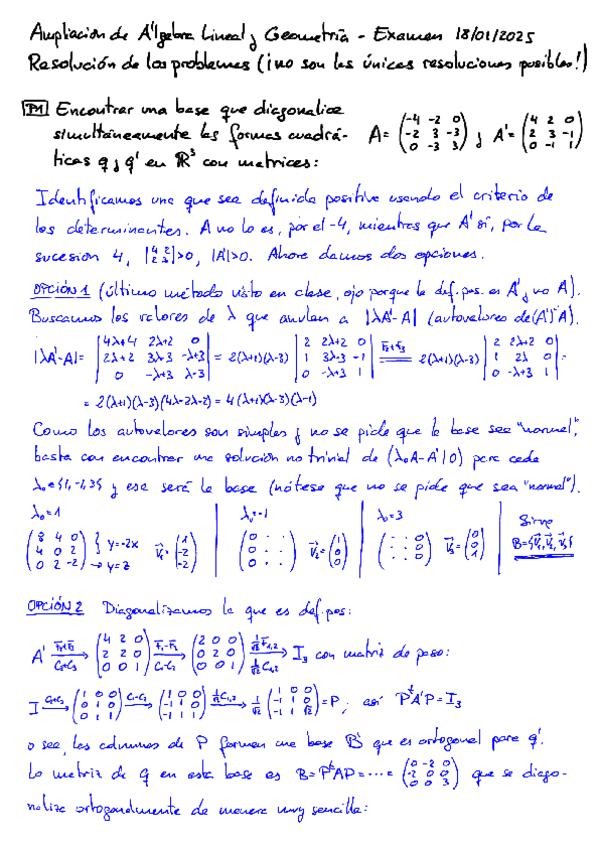 Ampliación de Álgebra Lineal y Geometría - Examen 18/01/2025
Resolución de los problemas (¡no son las únicas resoluciones posibles!)
P1 Encontrar una base que diagonalice
simultáneamente las formas cuadrá- A = (-4 -2 0; -2 3 -3; 0 -3 3) y A' = (4 2 0; 2 3 -1; 0 -1 1)
ticas q y q' en ℝ³ con matrices:
Identificamos una que sea definida positiva usando el criterio de
los determinantes. A no lo es, por el -4, mientras que A' sí, por la
sucesión 4, |4 2; 2 3|>0, |A'|>0. Ahora damos dos opciones.
OPCIÓN 1 (último método visto en clase, ojo porque la def. pos. es A' y no A).
Buscamos los valores de λ que anulan a |λA'-A| (autovalores de (A')⁻¹A).
|λA'-A| = |4λ+4 2λ+2 0; 2λ+2 3λ-3 -λ+3; 0 -λ+3 λ-3| = 2(λ+1)(λ-3) |2 2λ+2 0; 1 3λ-3 -1; 0 -λ+3 1| = 2(λ+1)(λ-3) |2 2λ+2 0; 1 2λ 0; 0 -λ+3 1| =
= 2(λ+1)(λ-3)(4λ-2λ-2) = 4(λ+1)(λ-3)(λ-1)
Como los autovalores son simples y no se pide que la base sea "normal",
basta con encontrar una solución no trivial de (λ₀A-A'|0) para cada
λ₀∈{1,-1,3} y esa será la base (nótese que no se pide que sea "normal").
λ₀=1 λ₀=-1 λ₀=3 Sirve
(8 4 0; 4 0 2; 0 2 -2) } y=-2x → y=z v₁=(1; -2; -2) (0 · ·; 0 · ·; 0 · ·) v₂=(1; 0; 0) (· · 0; · · 0; · · 0) v₃=(0; 0; 1) B={v₁,v₂,v₃}
OPCIÓN 2 Diagonalizamos la que es def. pos:
A' → (4 2 0; 2 2 0; 0 0 1) → (2 0 0; 0 2 0; 0 0 1) → I₃ con matriz de paso:
I → (1 0 0; 0 1 0; 0 1 1) → (1 0 0; -1 1 0; -1 1 1) → 1/√2 (1 0 0; -1 1 0; -1 1 √2) = P, así PᵗA'P = I₃
o sea, las columnas de P forman una base B' que es ortogonal para q'.
La matriz de q en esta base es B = PᵗAP = ... = (0 -2 0; -2 0 0; 0 0 3) que se diago-
naliza ortogonalmente de manera muy sencilla: